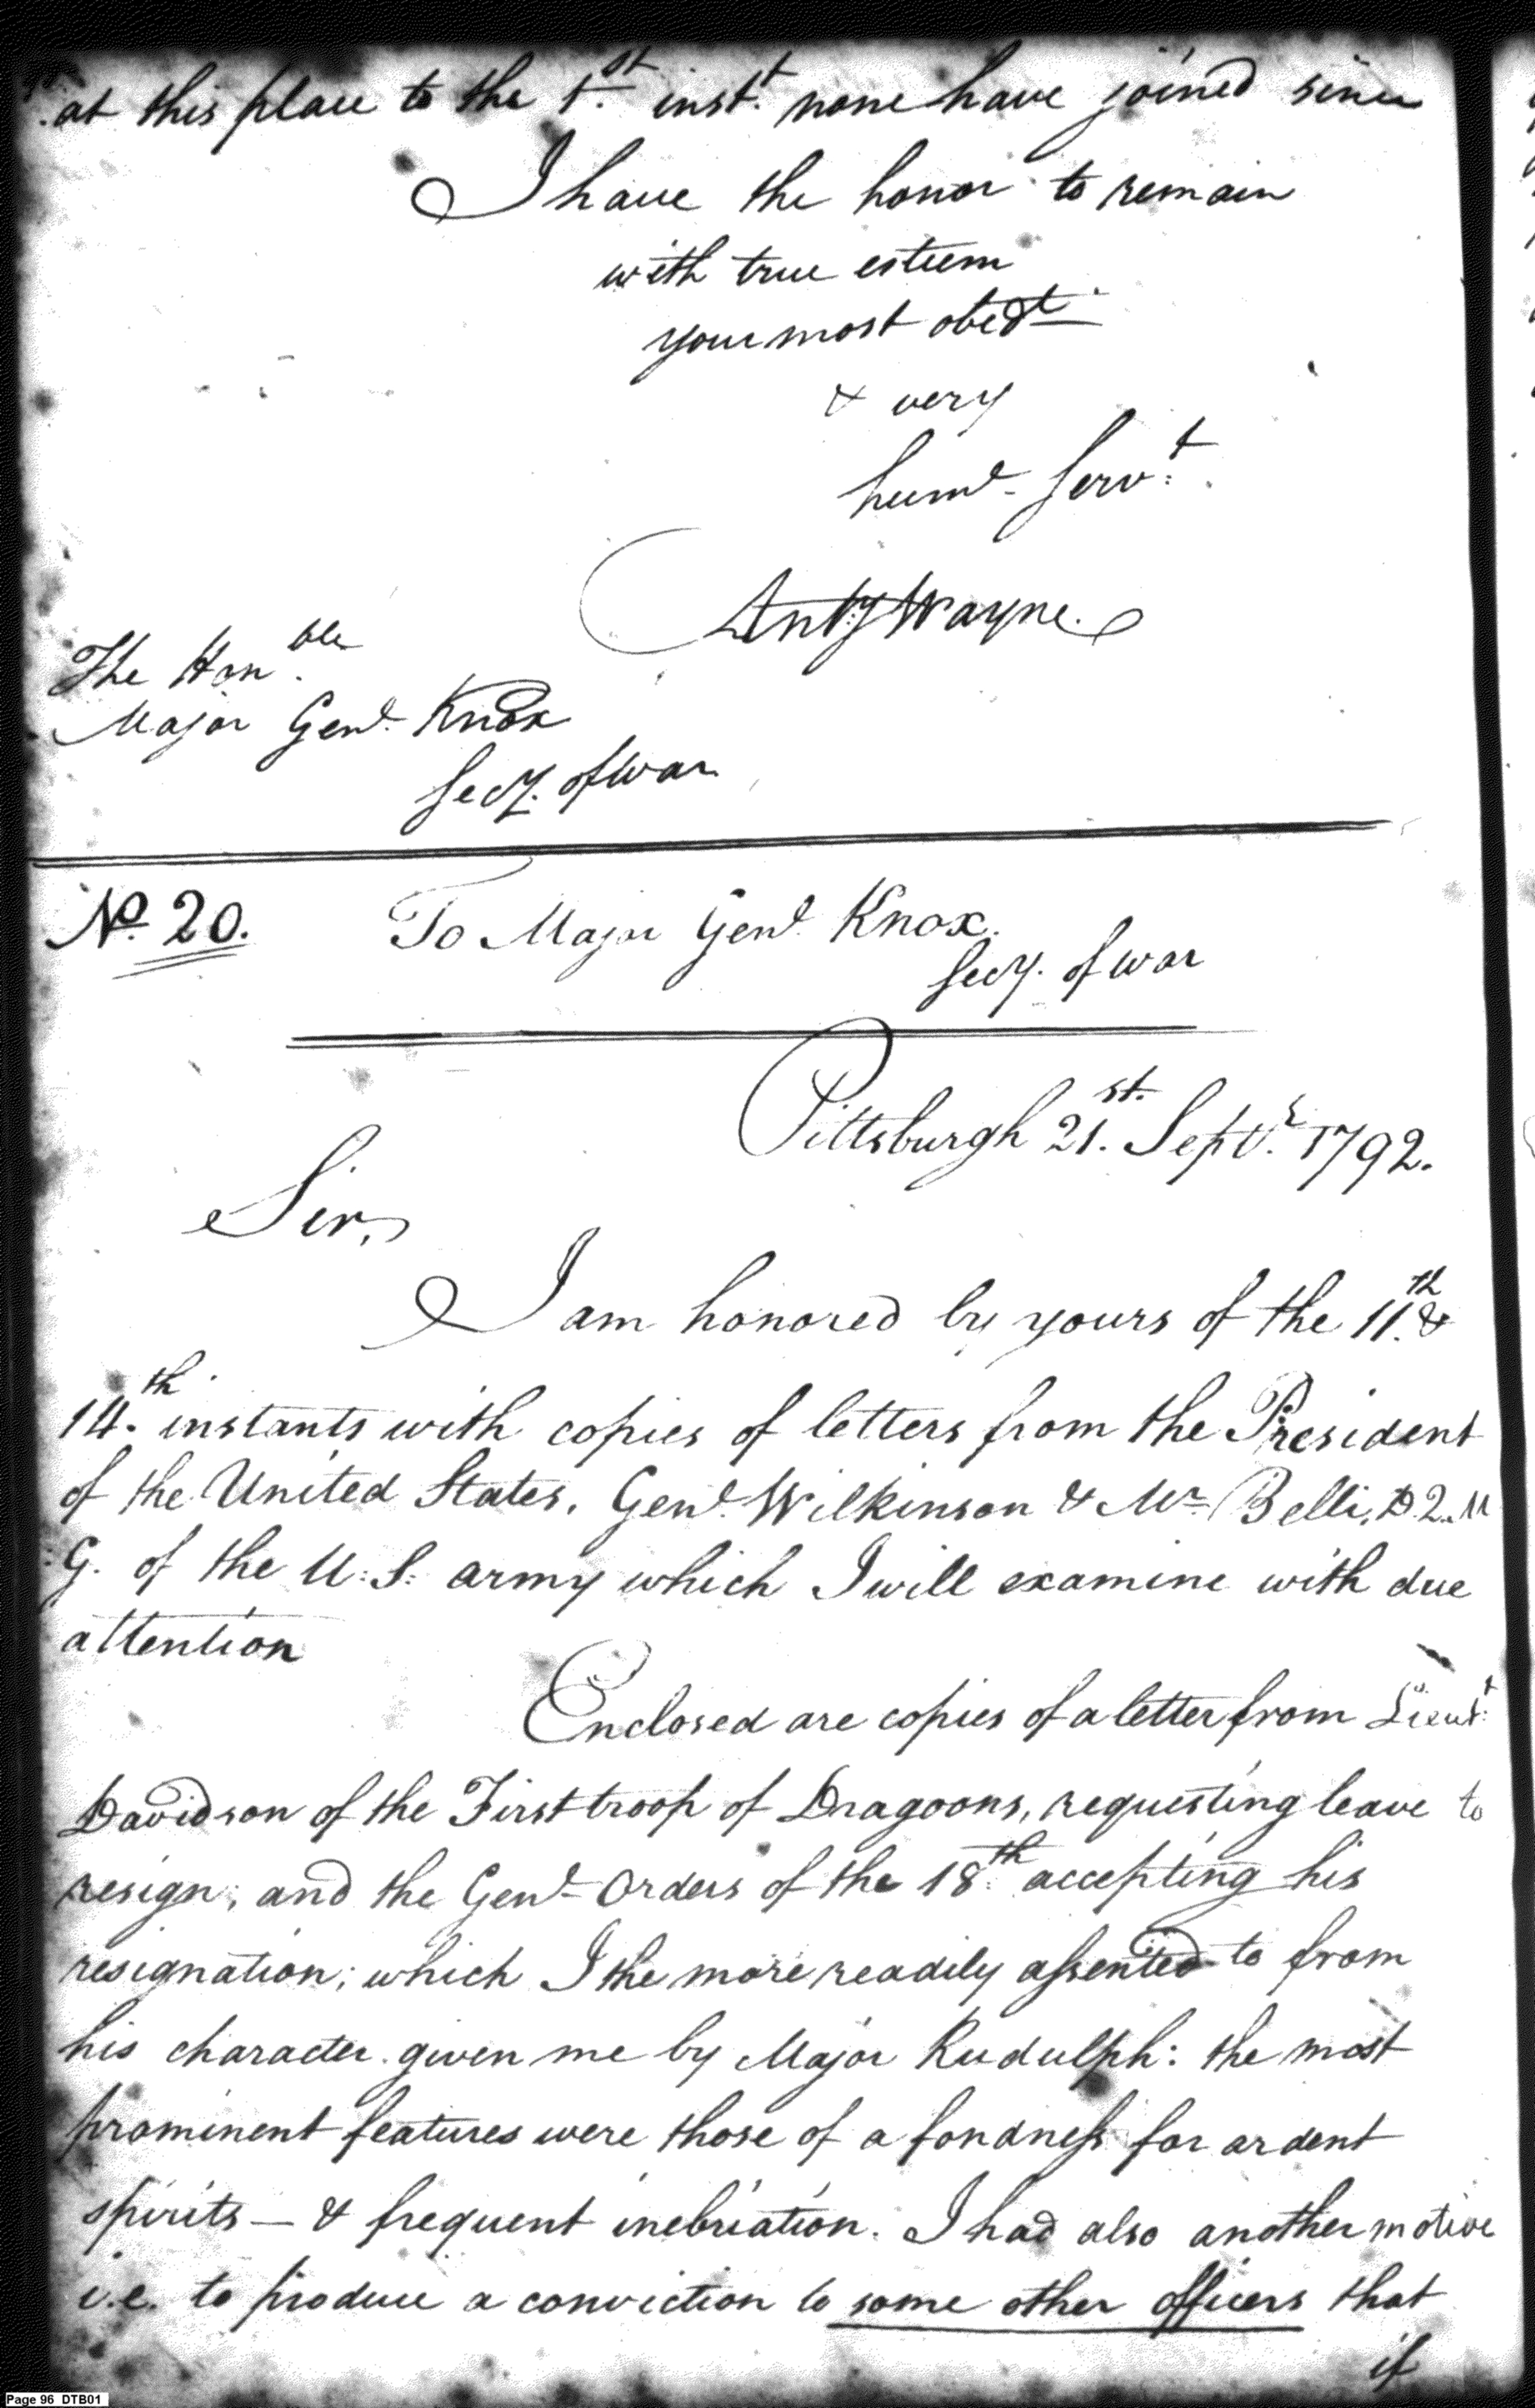 at this place to the 1.st inst.t none have joined since
I have the honor to remain
with true esteem
your most obedt
& very
huml. Serv.t
Anty Wayne.
The Hon.ble
Major Genl. Knox
Secy. of War
No. 20. To Major Genl. Knox.
Secy. of War
Pittsburgh 21.st Septr. 1792.
Sir,
I am honored by yours of the 11.th &
14.th instants with copies of letters from the President
of the United States, Genl. Wilkinson & Mr. Belli, D. Q. M
G. of the U: S: army which I will examine with due
attention
Enclosed are copies of a letter from Lieut:t
Davidson of the First troop of Dragoons, requesting leave to
resign; and the Genl. Orders of the 18.th accepting his
resignation; which I the more readily assented to from
his character given me by Major Rudulph: the most
prominent features were those of a fondness for ardent
spirits — & frequent inebriation. I had also another motive
i.e. to produce a conviction to some other officers that
if
Page 96 DTB01